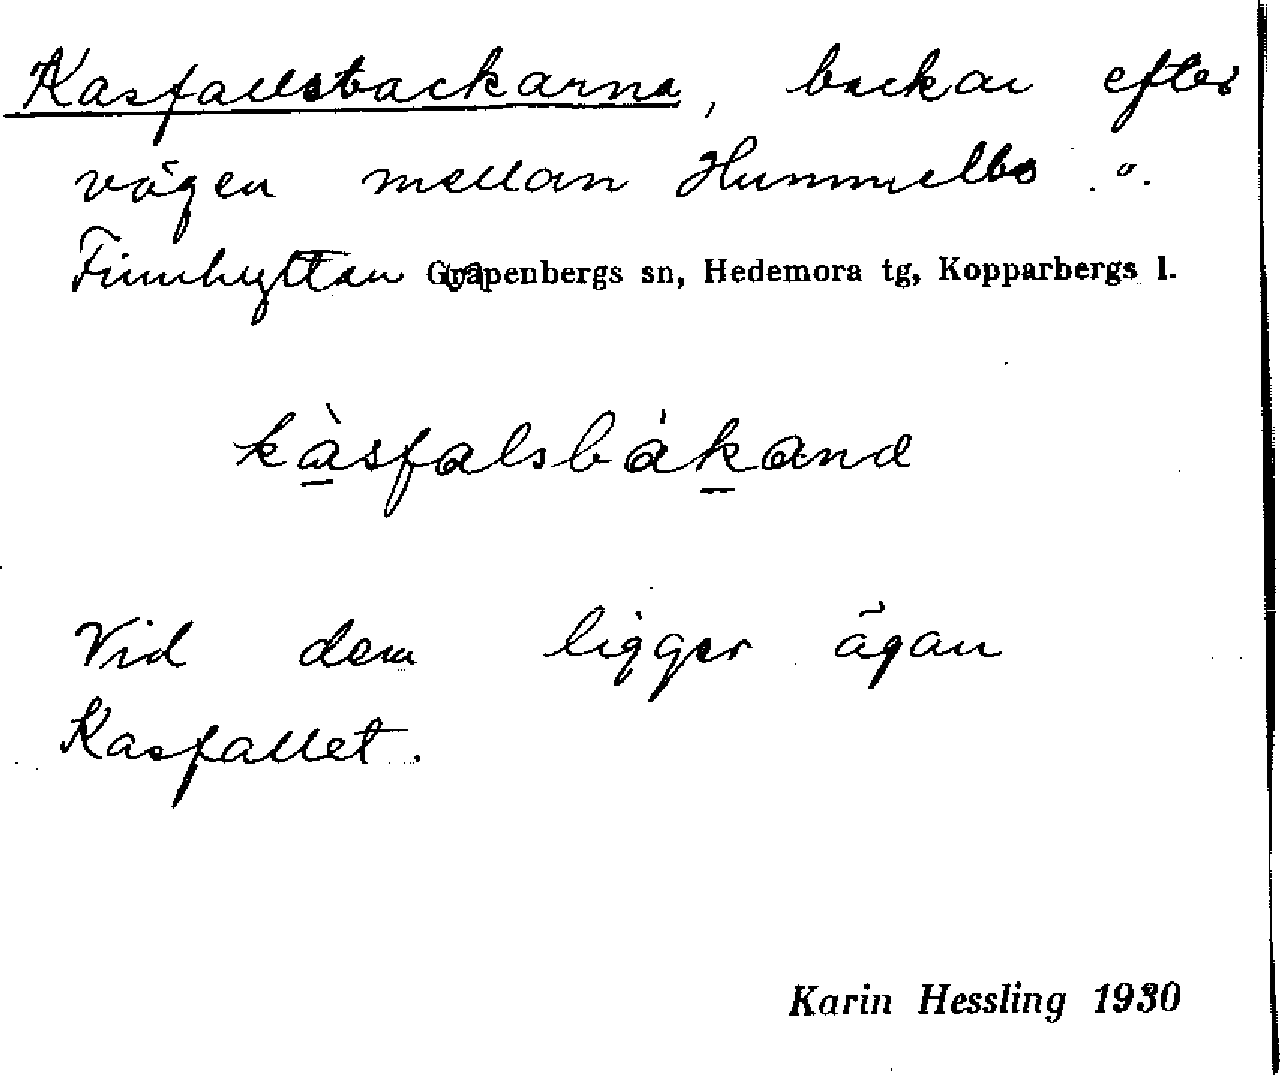 Kasfallsbackarna, backar efter
vägen mellan Hummelbo o.
Finnhyttan Garpenbergs sn, Hedemora tg, Kopparbergs l.
kàsfalsbákana
Vid dem ligger ägan
Kasfallet.
Karin Hessling 1930